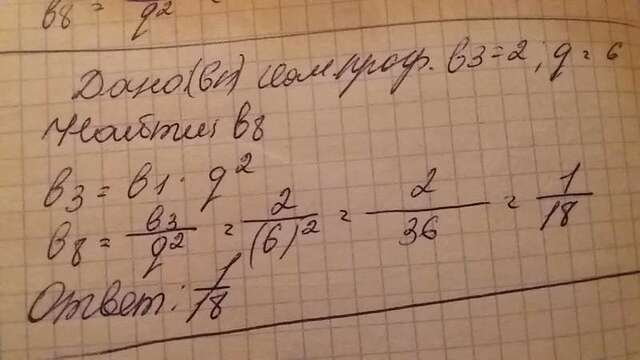 в8 = q²
Дано: (вn) геом. прогр. в3=2; q = 6
Найти: в8
в3 = в1 · q²
в8 = в3/q² = 2/(6)² = 2/36 = 1/18
Ответ: 1/18